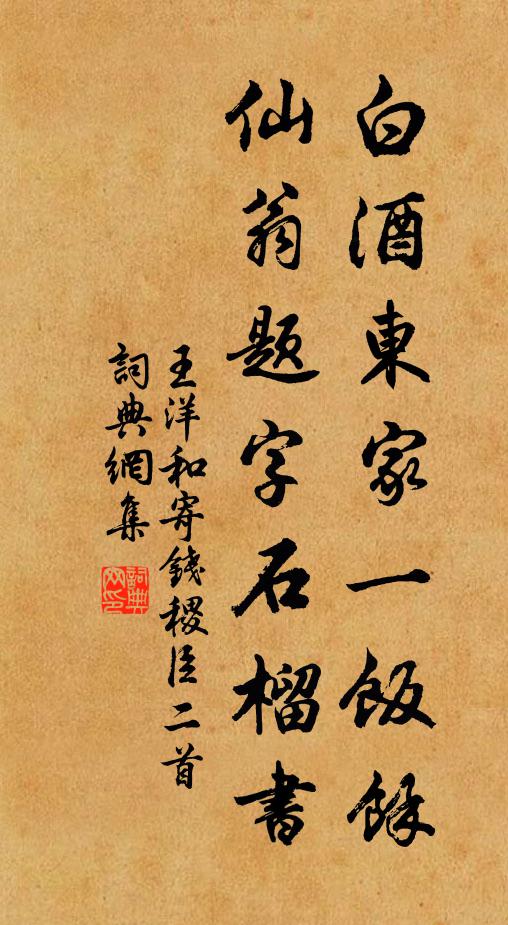 白酒東家一飯餘
仙翁题字石榴書
王洋和寄錢稷臣二首
詞典網集
詞典網印